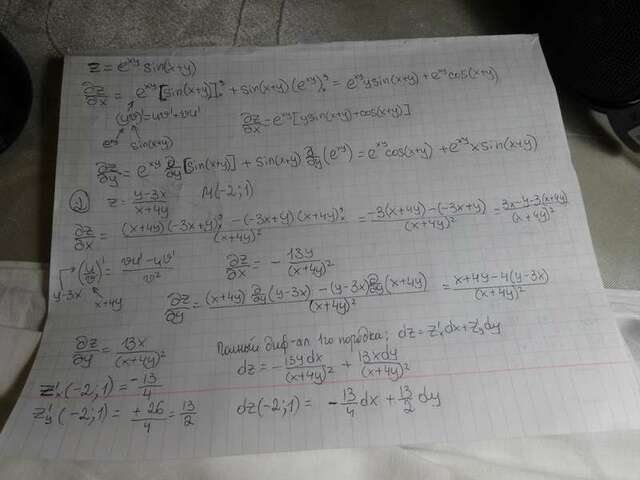 z = e^{xy} sin(x+y)
∂z/∂x = e^{xy} [sin(x+y)]'ₓ + sin(x+y) (e^{xy})'ₓ = e^{xy} y sin(x+y) + e^{xy} cos(x+y)
(uv)' = uv' + vu'
e^{xy} sin(x+y)
∂z/∂x = e^{xy} [y sin(x+y) + cos(x+y)]
∂z/∂y = e^{xy} ∂/∂y [sin(x+y)] + sin(x+y) ∂/∂y (e^{xy}) = e^{xy} cos(x+y) + e^{xy} x sin(x+y)
② z = (y-3x)/(x+4y) M(-2;1)
∂z/∂x = ((x+4y)(-3x+y)'ₓ - (-3x+y)(x+4y)'ₓ)/(x+4y)² = (-3(x+4y) - (-3x+y))/(x+4y)² = (3x-y-3(x+4y))/(x+4y)²
(u/v)' = (vu' - uv')/v² ∂z/∂x = - 13y/(x+4y)²
y-3x x+4y
∂z/∂y = ((x+4y) ∂/∂y (y-3x) - (y-3x) ∂/∂y (x+4y))/(x+4y)² = (x+4y-4(y-3x))/(x+4y)²
∂z/∂y = 13x/(x+4y)²
Полный диф-ал 1го порядка: dz = z'ₓdx + z'ᵧdy
dz = - 13y dx/(x+4y)² + 13x dy/(x+4y)²
z'ₓ(-2;1) = -13/4
z'ᵧ(-2;1) = +26/4 = 13/2
dz(-2;1) = - 13/4 dx + 13/2 dy